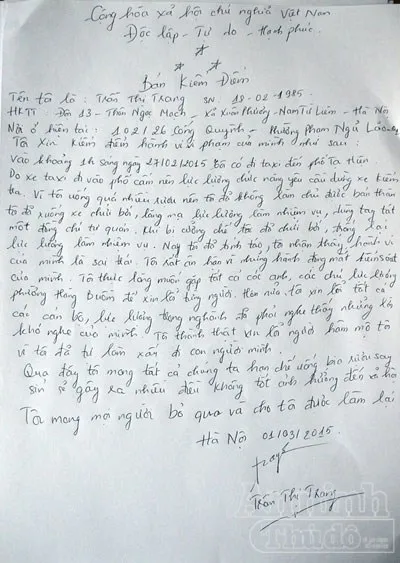 Cộng hòa xã hội chủ nghĩa Việt Nam
Độc lập - Tự do - Hạnh phúc.
Bản Kiểm Điểm
Tên tôi là : Trần Thị Trang SN : 18-02-1985.
HKTT : Đội 13 - Thôn Ngọc Mạch - Xã Xuân Phương - Nam Từ Liêm - Hà Nội
Nơi ở hiện tại : 102/26 Cống Quỳnh - Phường Phạm Ngũ Lão
Tôi xin kiểm điểm hành vi vi phạm của mình như sau :
Vào khoảng 1h sáng ngày 27/02/2015 tôi có đi taxi đến phố Tạ Hiện
Do xe taxi đi vào phố cấm nên lực lượng chức năng yêu cầu dừng xe kiểm
tra. Vì tôi uống quá nhiều rượu nên tôi đã không làm chủ được bản thân
tôi đã xuống xe chửi bới, lăng mạ lực lượng làm nhiệm vụ, dùng tay tát
một đồng chí tự quản. Khi bị cưỡng chế tôi đã chửi bới, thẳng lại
lực lượng làm nhiệm vụ. Nay tôi đã bình tĩnh, tôi nhận thấy hành vi
của mình là sai trái. Tôi rất ân hận vì những hành động mất kiểm soát
của mình. Tôi thực lòng muốn gặp tất cả các anh, các chú lực lượng
phường Hàng Buồm để xin lỗi từng người. Hơn nữa tôi xin lỗi tất cả
các cán bộ, lực lượng trong nghành đã phải nghe thấy những lời
khó nghe của mình. Tôi thành thật xin lỗi người hâm mộ tôi
vì tôi đã tự làm xấu đi con người mình.
Qua đây tôi mong tất cả chúng ta hạn chế uống bia rượu say
sỉn sẽ gây ra nhiều điều không tốt ảnh hưởng đến xã hội
Tôi mong mọi người bỏ qua và cho tôi được làm lại
Hà Nội 01/03/2015.
Trang
Trần Thị Trang
An ninh
Thủ đô